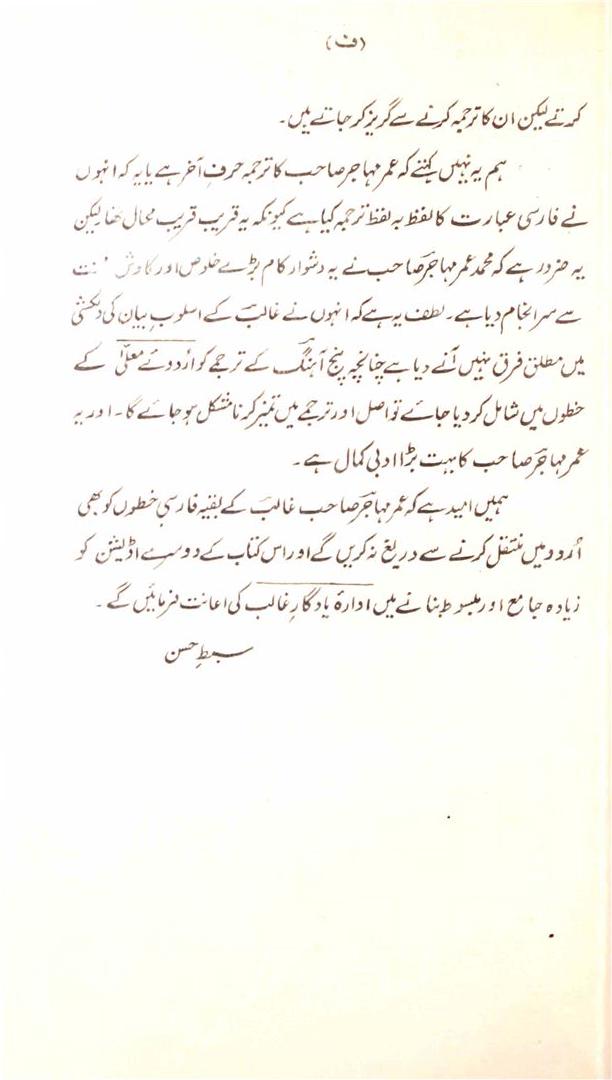 (ف)
کرتے لیکن ان کا ترجمہ کرنے سے گریز کر جاتے ہیں۔
ہم یہ نہیں کہتے کہ عمر مہاجر صاحب کا ترجمہ حرفِ آخر ہے یا یہ کہ انہوں
نے فارسی عبارت کا لفظ بہ لفظ ترجمہ کیا ہے کیونکہ یہ قریب قریب محال تھا لیکن
یہ ضرور ہے کہ محمد عمر مہاجرؔ صاحب نے یہ دشوار کام بڑے خلوص اور کاوش
سے سرانجام دیا ہے۔ لطف یہ ہے کہ انہوں نے غالبؔ کے اسلوبِ بیان کی دلکشی
میں مطلق فرق نہیں آنے دیا ہے چنانچہ پنج آہنگ کے ترجمے کو اُردوئے معلّیٰ کے
خطوں میں شامل کر دیا جائے تو اصل اور ترجمے میں تمیز کرنا مشکل ہو جائے گا۔ اور یہ
عمر مہاجرؔ صاحب کا بہت بڑا ادبی کمال ہے۔
ہمیں امید ہے کہ عمر مہاجرؔ صاحب غالبؔ کے بقیہ فارسی خطوں کو بھی
اُردو میں منتقل کرنے سے دریغ نہ کریں گے اور اس کتاب کے دوسرے اڈیشن کو
زیادہ جامع اور مبسوط بنانے میں ادارۂ یادگارِ غالب کی اعانت فرمائیں گے۔
سبطِ حسن